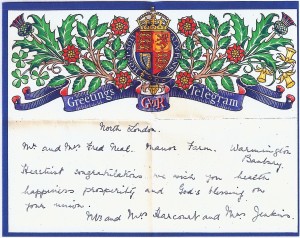 Greetings Telegram
GVIR
North London.
Mr and Mrs Fred Neal. Manor Farm. Warmington
Banbury.
Heartiest congratulations we wish you health
happiness prosperity and God's blessing on
your union.
Mr and Mrs Harcourt and Mrs Jenkins.